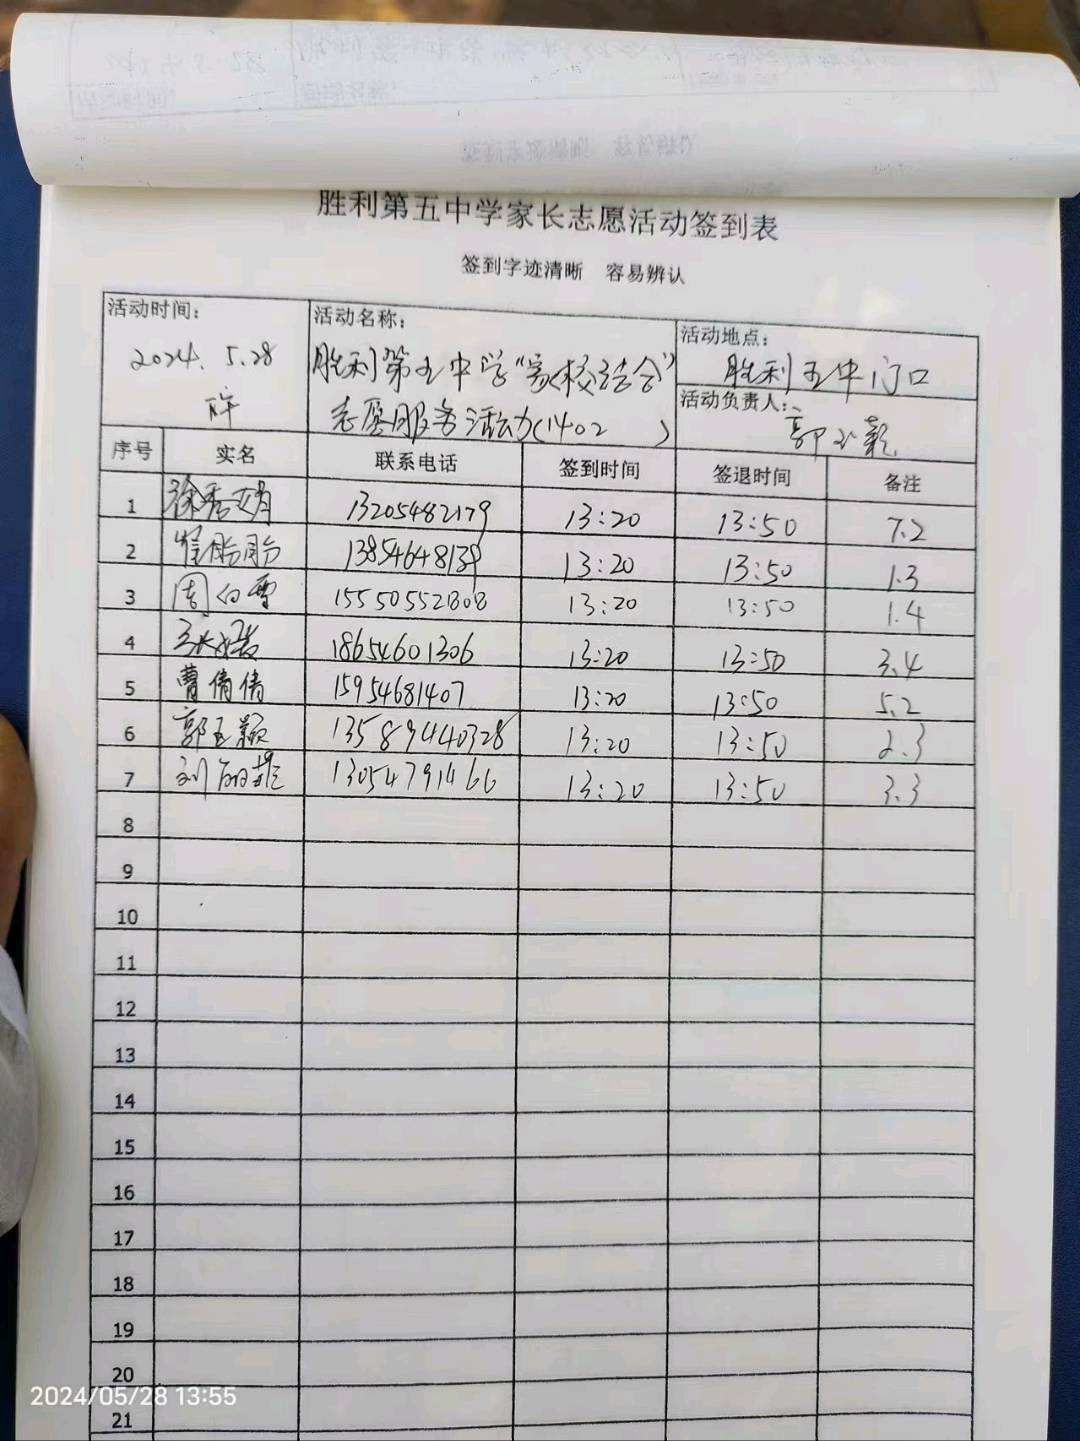 胜利第五中学家长志愿活动签到表
签到字迹清晰 容易辨认
活动时间: 活动名称: 活动地点:
2024. 5.28 胜利第五中学"家校结合" 胜利五中门口
志愿服务活动(1402 ) 活动负责人: 郭玉颖
序号 实名 联系电话 签到时间 签退时间 备注
1 徐秀娟 13205482179 13:20 13:50 7.2
2 13854648139 13:20 13:50 1.3
3 周白雪 15550552808 13:20 13:50 1.4
4 18654601306 13:20 13:50 3.4
5 曹倩倩 15954681407 13:20 13:50 5.2
6 郭玉颖 13589440328 13:20 13:50 2.3
7 13054791466 13:20 13:50 3.3
8
9
10
11
12
13
14
15
16
17
18
19
20
21
2024/05/28 13:55